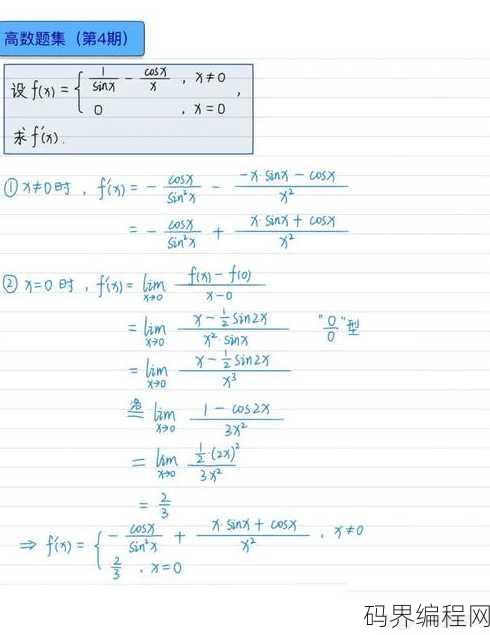 高数题集（第4期）
设 f(x) = { 1/sinx - cosx/x , x≠0
0 , x=0 ,
求 f'(x).
① x≠0时, f'(x) = - cosx/sin²x - (-x·sinx - cosx)/x²
= - cosx/sin²x + (x·sinx + cosx)/x²
② x=0时, f'(x) = lim x→0 (f(x) - f(0))/(x-0)
= lim x→0 (x - 1/2 sin2x)/(x²·sinx) "0/0"型
= lim x→0 (x - 1/2 sin2x)/x³
洛= lim x→0 (1 - cos2x)/3x²
= lim x→0 (1/2·(2x)²)/3·x²
= 2/3
⇒ f'(x) = { - cosx/sin²x + (x·sinx + cosx)/x² , x≠0
2/3 , x=0
码界编程网